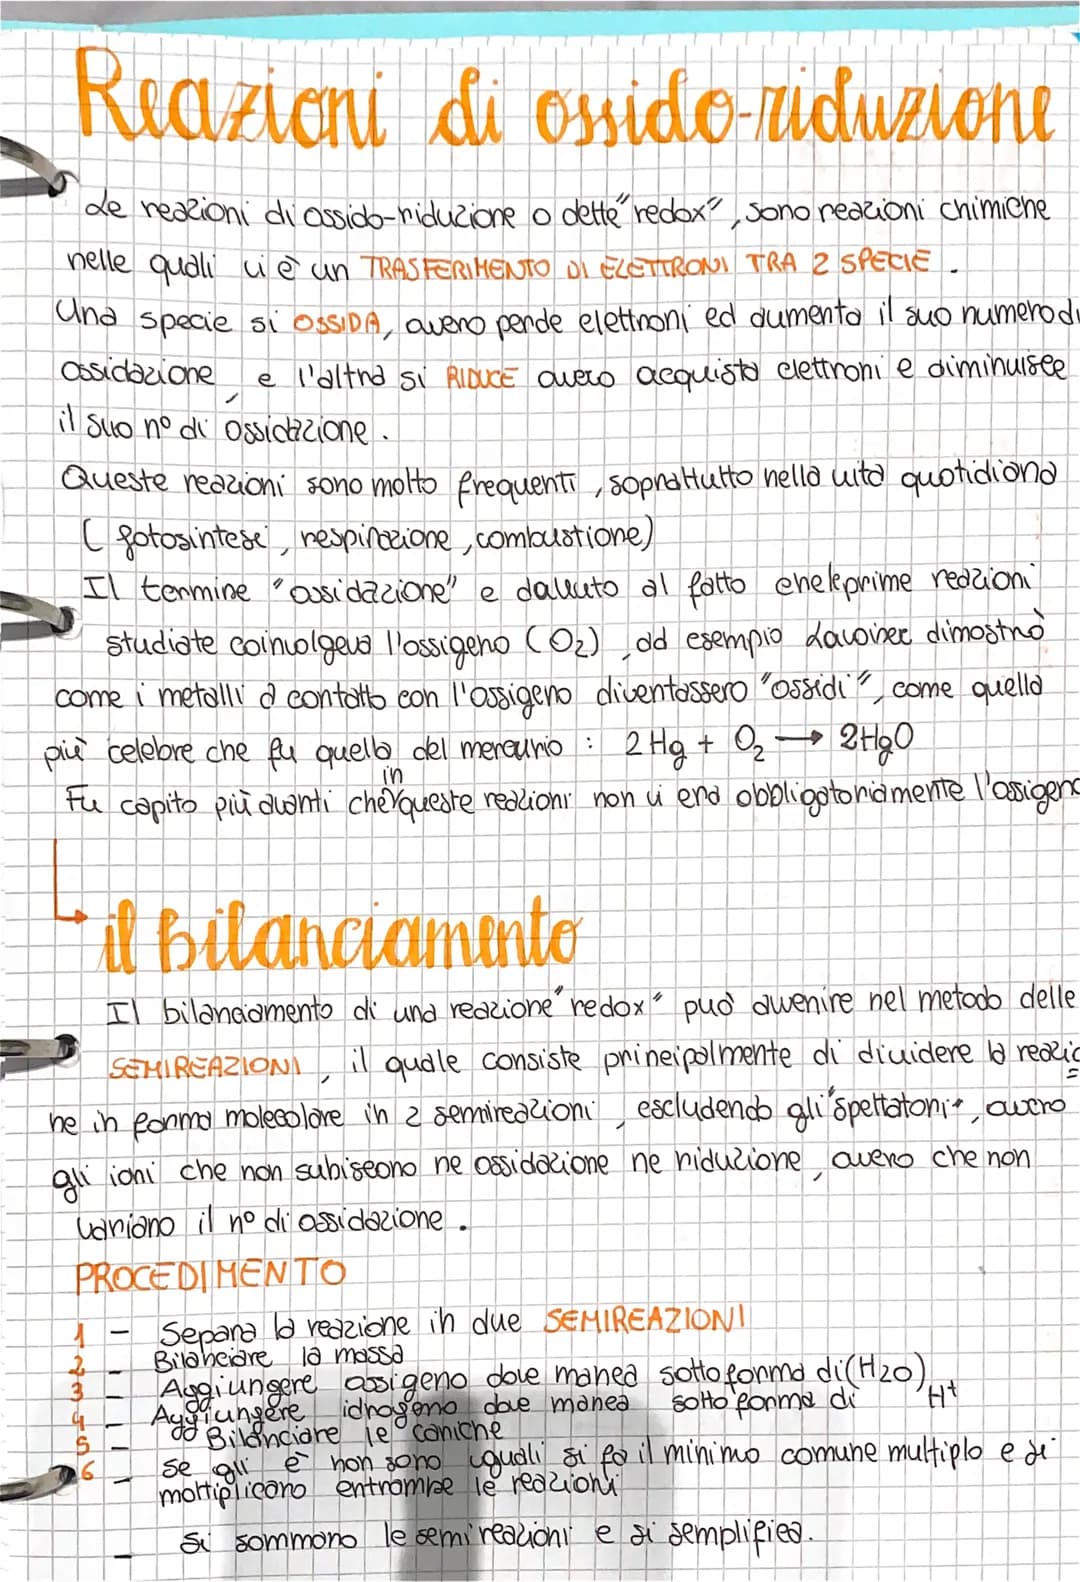 Reazioni di ossido-riduzione
Le reazioni di ossido-riduzione o dette "redox", sono reazioni chimiche
nelle quali vi è un TRASFERIMENTO DI ELETTRONI TRA 2 SPECIE.
Una specie si OSSIDA, ovvero perde elettroni ed aumenta il suo numero di
ossidazione, e l'altra si RIDUCE ovvero acquista elettroni e diminuisce
il suo n° di ossidazione.
Queste reazioni sono molto frequenti, soprattutto nella vita quotidiana
( fotosintesi, respirazione, combustione)
Il termine "ossidazione" e dovuto al fatto che le prime reazioni
studiate coinvolgeva l'ossigeno (O2), ad esempio Lavoiser dimostrò
come i metalli a contatto con l'ossigeno diventassero "ossidi", come quella
più celebre che fu quello del mercurio : 2Hg + O2 → 2HgO
Fu capito più avanti che in queste reazioni non vi era obbligatoriamente l'ossigeno
il Bilanciamento
Il bilanciamento di una reazione "redox" può avvenire nel metodo delle
SEMIREAZIONI, il quale consiste principalmente di dividere la reazio
ne in forma molecolare in 2 semireazioni, escludendo gli "spettatori", ovvero
gli ioni che non subiscono ne ossidazione ne riduzione, ovvero che non
variano il n° di ossidazione.
PROCEDIMENTO
1 - Separa la reazione in due SEMIREAZIONI
2 - Bilanciare la massa
3 - Aggiungere ossigeno dove manca sotto forma di (H2O)
4 - Aggiungere idrogeno dove manca sotto forma di H+
5 - Bilanciare le cariche
6 - se gli e- non sono uguali si fa il minimo comune multiplo e si
moltiplicano entrambe le reazioni
- si sommano le semireazioni e si semplifica.